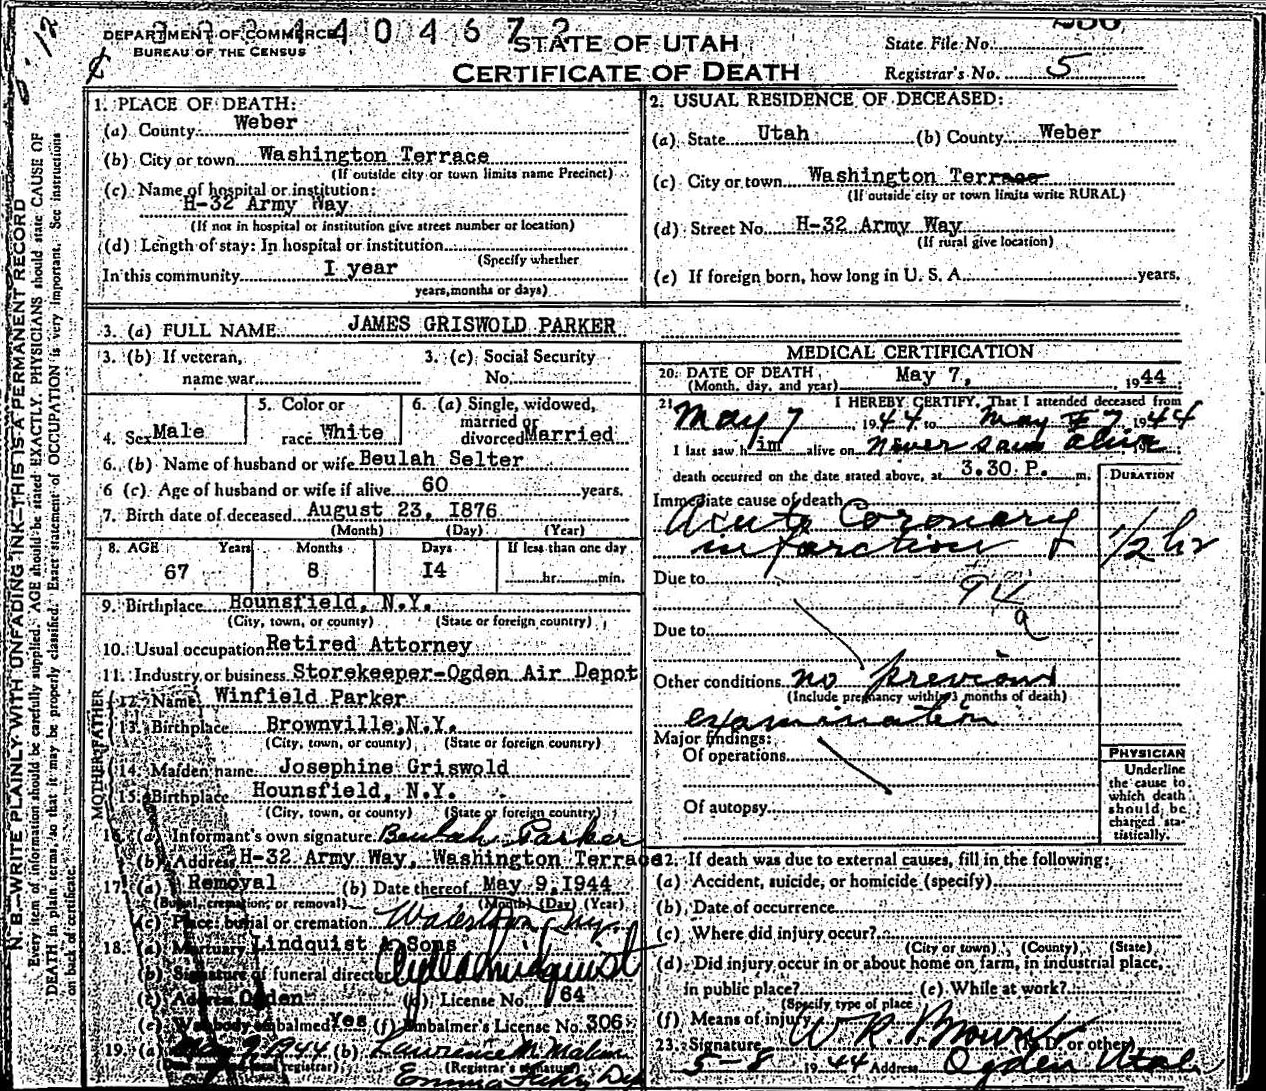 DEPARTMENT OF COMMERCE
BUREAU OF THE CENSUS
STATE OF UTAH
CERTIFICATE OF DEATH
State File No.
Registrar's No. 5
N. B.—WRITE PLAINLY WITH UNFADING INK—THIS IS A PERMANENT RECORD
Every item of information should be carefully supplied. AGE should be stated EXACTLY. PHYSICIANS should state CAUSE OF
DEATH in plain terms, so that it may be properly classified. Exact statement of OCCUPATION is very important. See instructions
on back of certificate.
1. PLACE OF DEATH:
(a) County Weber
(b) City or town Washington Terrace
(If outside city or town limits name Precinct)
(c) Name of hospital or institution:
H-32 Army Way
(If not in hospital or institution give street number or location)
(d) Length of stay: In hospital or institution
(Specify whether
In this community I year
years, months or days)
2. USUAL RESIDENCE OF DECEASED:
(a) State Utah (b) County Weber
(c) City or town Washington Terrace
(If outside city or town limits write RURAL)
(d) Street No. H-32 Army Way
(If rural give location)
(e) If foreign born, how long in U. S. A. years.
3. (a) FULL NAME JAMES GRISWOLD PARKER
3. (b) If veteran,
name war
3. (c) Social Security
No.
4. Sex Male
5. Color or
race White
6. (a) Single, widowed,
married or
divorced Married
6. (b) Name of husband or wife Beulah Selter
6 (c) Age of husband or wife if alive 60 years.
7. Birth date of deceased August 23, I876
(Month) (Day) (Year)
8. AGE Years Months Days If less than one day
67 8 I4 hr. min.
9. Birthplace Hounsfield, N.Y.
(City, town, or county) (State or foreign country)
10. Usual occupation Retired Attorney
11. Industry or business Storekeeper-Ogden Air Depot
FATHER
12. Name Winfield Parker
13. Birthplace Brownville, N.Y.
(City, town, or county) (State or foreign country)
MOTHER
14. Maiden name Josephine Griswold
15. Birthplace Hounsfield, N.Y.
(City, town, or county) (State or foreign country)
16. (a) Informant's own signature Beulah Parker
(b) Address H-32 Army Way, Washington Terrace
17. (a) Removal (b) Date thereof May 9, I944
(Burial, cremation, or removal) (Month) (Day) (Year)
(c) Place: burial or cremation Watertown N.Y.
18. (a) Mortuary Lindquist & Sons
(b) Signature of funeral director Clyde Lindquist
(c) Address Ogden (d) License No. 64
(e) Was body embalmed? Yes (f) Embalmer's License No. 306
19. (a) May 9 1944 (b) Lawrence M. Malan
(Registrar's signature)
MEDICAL CERTIFICATION
20. DATE OF DEATH
(Month, day, and year) May 7, 1944
21. I HEREBY CERTIFY, That I attended deceased from
May 7, 1944 to May 7 1944
I last saw him alive on Never saw alive 19
death occurred on the date stated above, at 3.30 P. m.
DURATION
Immediate cause of death
Acute Coronary
infarction 1/2 hr
Due to 94
a
Due to
Other conditions no previous
(Include pregnancy within 3 months of death)
examination
Major findings:
Of operations
Of autopsy
PHYSICIAN
Underline
the cause to
which death
should be
charged sta-
tistically.
22. If death was due to external causes, fill in the following:
(a) Accident, suicide, or homicide (specify)
(b) Date of occurrence
(c) Where did injury occur?
(City or town) (County) (State)
(d) Did injury occur in or about home on farm, in industrial place,
in public place? (e) While at work?
(Specify type of place
(f) Means of injury
23. Signature W R. (M.D. or other)
5-8 1944 Address Ogden Utah